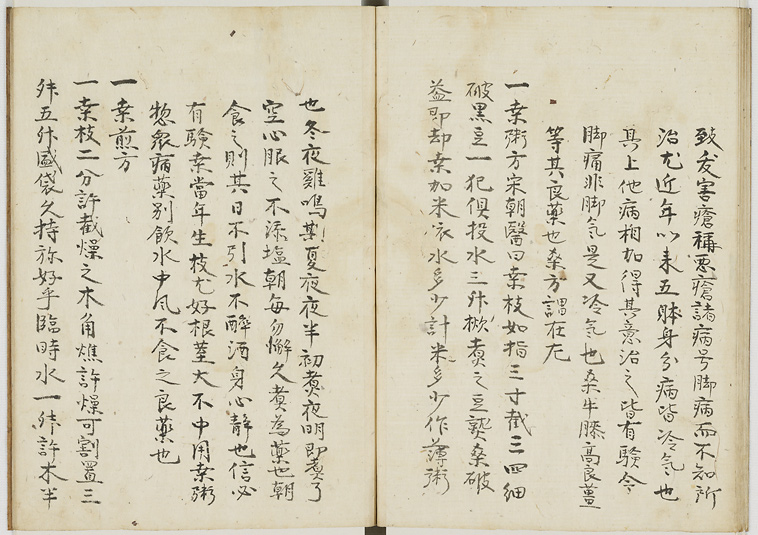 致灸害瘡称悪瘡諸病号脚病而不知所
治尤近年以来五躰身分病皆冷気也
其上他病相加得其意治之皆有験今
脚痛非脚気是又冷気也桑牛膝高良薑
等其良薬也桑方謂在左
一桒粥方宋朝醫曰桒枝如指三寸截三四細
破黒豆一把俱投水三升㰸煮之豆熟桑破
益即却桒加米依水多少計米多少作薄粥
也冬夜雞鳴期夏夜夜半初煮夜明即煮了
空心服之不添塩朝每勿懈久煮為薬也朝
食之則其日不引水不醉酒身心静也信必
有験桒當年生枝尤好根莖大不中用桒粥
惣衆病薬別飲水中風不食之良薬也
一桒煎方
一桒枝二分許截燥之木角燋許燥可割置三
舛五舛盛袋久持弥好乎臨時水一舛許木半